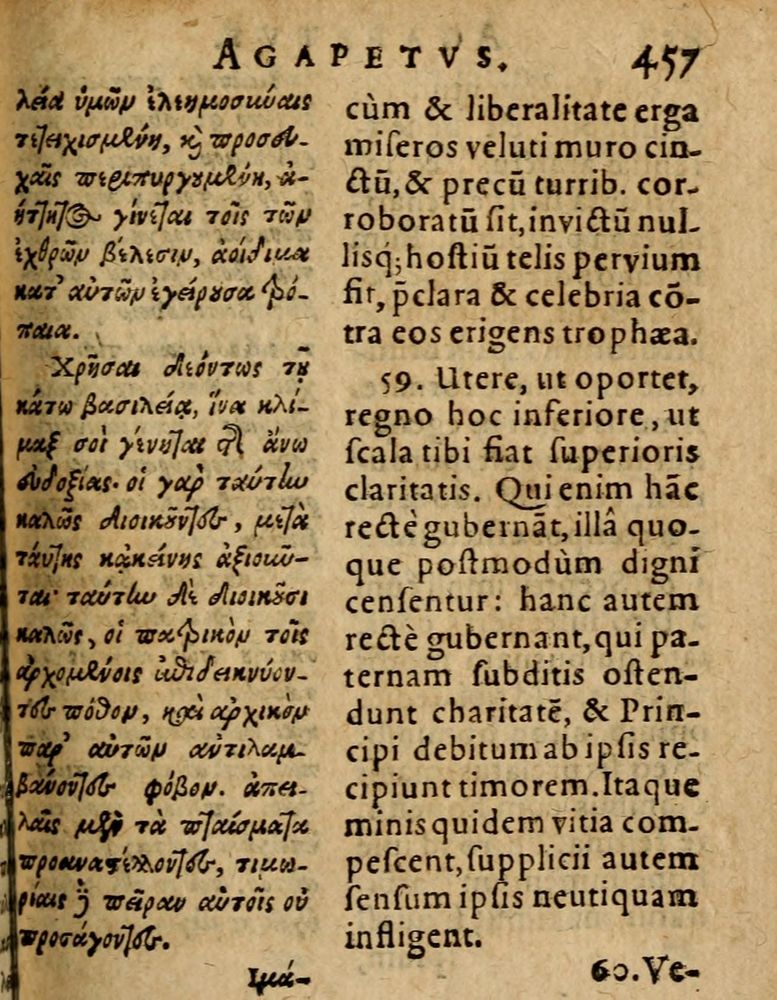 AGAPETVS. 457
λεία ὑμῶν ἐλεημοσύναις
τετειχισμένη, καὶ προσευ-
χαῖς πεπυργουμένη, ἀ-
ήττητος γίνεται τοῖς τῶν
ἐχθρῶν βέλεσιν, ἀοίδιμα
κατ' αὐτῶν ἐγείρουσα τρό-
παια.
Χρῆσαι δεόντως τῇ
κάτω βασιλείᾳ, ἵνα κλί-
μαξ σοὶ γένηται τῆς ἄνω
εὐδοξίας. οἱ γὰρ ταύτην
καλῶς διοικοῦντες, μετὰ
ταύτης κἀκείνης ἀξιοῦν-
ται· ταύτην δὲ διοικοῦσι
καλῶς, οἱ πατρικὸν τοῖς
ἀρχομένοις ἐπιδεικνύον-
τες πόθον, καὶ ἀρχικὸν
παρ' αὐτῶν ἀντιλαμ-
βάνοντες φόβον. ἀπει-
λαῖς μὲν τὰ πταίσματα
προαναστέλλοντες, τιμω-
ρίαις δὲ πεῖραν αὐτοῖς οὐ
προσάγοντες.
Ιμά-
cùm & liberalitate erga
miſeros veluti muro cin-
ctū, & precū turrib. cor-
roboratū ſit, invictū nul-
liſq́; hoſtiū telis pervium
fit, p̄clara & celebria cō-
tra eos erigens trophæa.
59. Utere, ut oportet,
regno hoc inferiore, ut
ſcala tibi fiat ſuperioris
claritatis. Qui enim hāc
rectè gubernāt, illâ quo-
que poſtmodùm digni
cenſentur: hanc autem
rectè gubernant, qui pa-
ternam ſubditis oſten-
dunt charitatē, & Prin-
cipi debitum ab ipſis re-
cipiunt timorem. Itaque
minis quidem vitia com-
peſcent, ſupplicii autem
ſenſum ipſis neutiquam
infligent.
60. Ve-